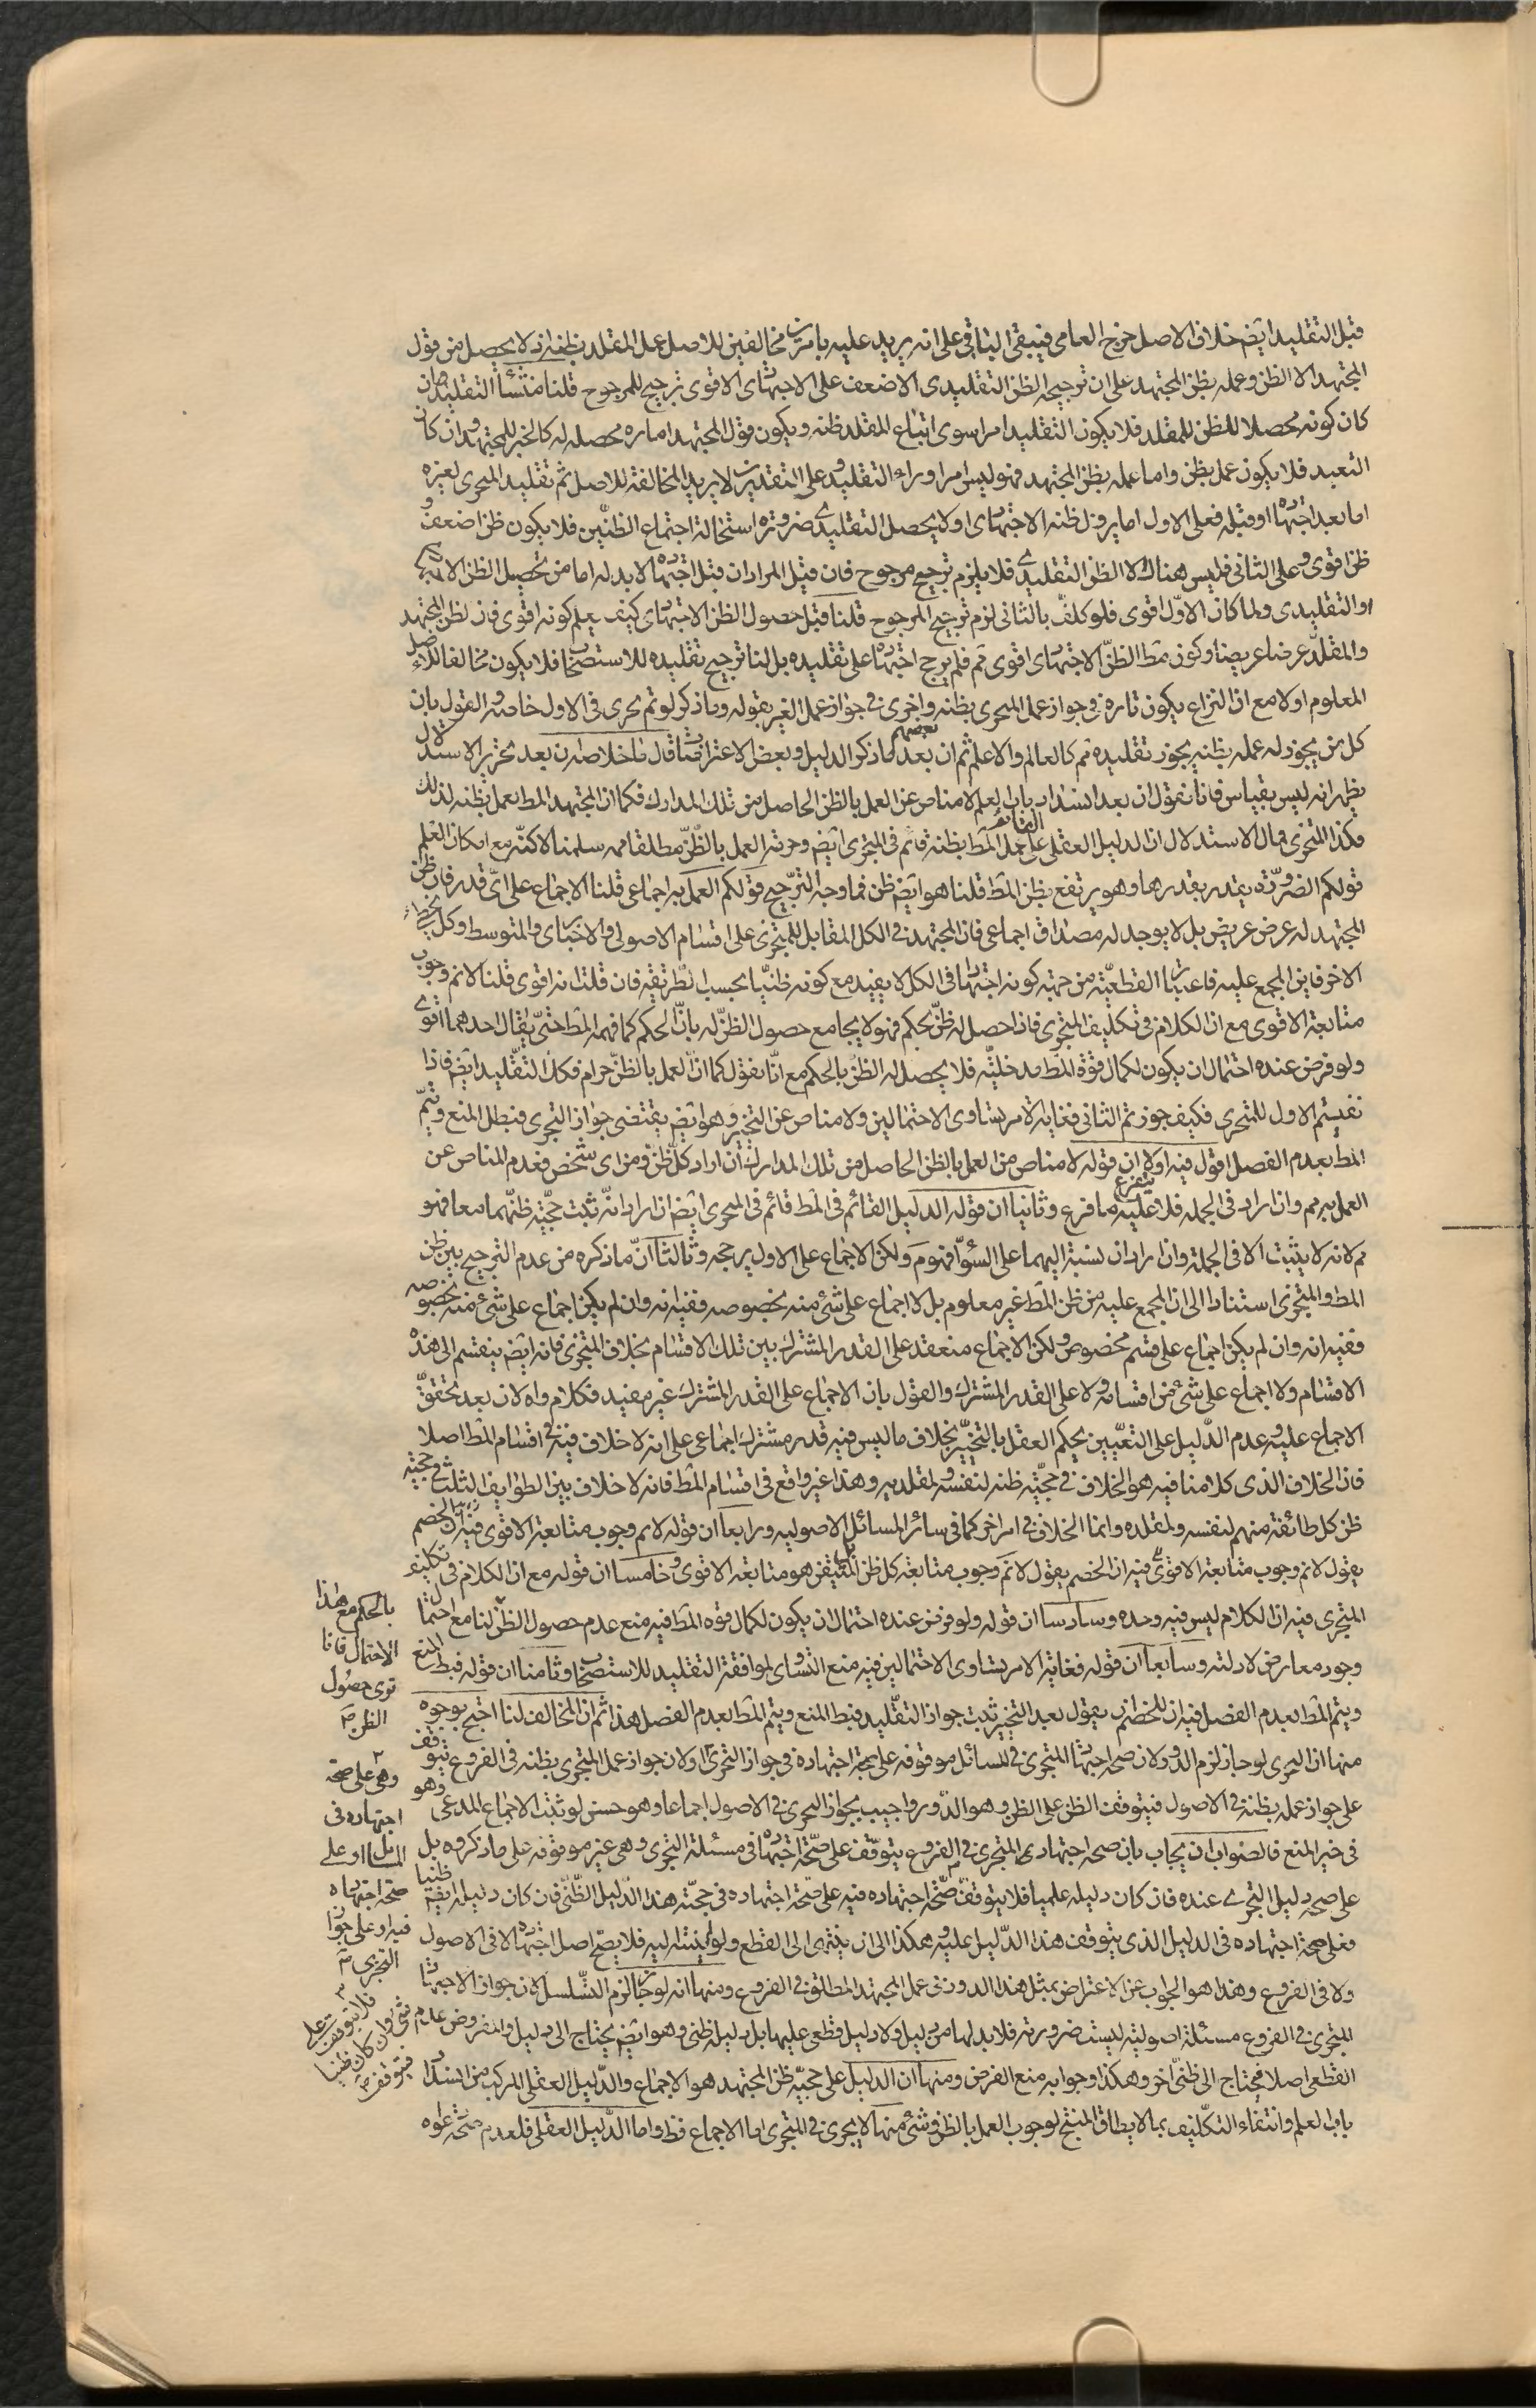 قبل التقليد ايضم خلاف الاصل خرج العامى فيبقى الباقى على انه يريد عليه بامرين مخالفين للاصل عمل المقلد بظنه اذ لا يحصل من قول
المجتهد الا الظن وعمله بظن المجتهد على ان ترجيح الظن التقليدى الاضعف على الاجتهادى الاقوى ترجيح للمرجوح قلنا منشأ التقليد ان
كان كونه محصلا للظن للمقلد فلا يكون التقليد امرا سوى اتباع المقلد ظنه ويكون قول المجتهد امارة محصله له كالخبر للمجتهد وان كان
التعبد فلا يكون عمل بظن واما عمله بظن المجتهد فهو ليس امرا وراء التقليد وعلى التقديرين لا يريد المخالفة للاصل ثم تقليد المتجرى لغيره
اما بعد اجتهاده او قبله فعلى الاول اما يزول ظنه الاجتهادى او لا يحصل التقليدى ضرورة استحالة اجتماع الظنين فلا يكون ظن اضعف و
ظن اقوى وعلى الثانى فليس هناك الا الظن التقليدى فلا يلزم ترجيح مرجوح فان قيل المراد ان قبل اجتهاده لا بد له اما من تحصيل الظن الاجتهادى
او التقليدى ولما كان الاول اقوى فلو كلف بالثانى لزم ترجيح المرجوح قلنا قبل حصول الظن الاجتهادى كيف يعلم كونه اقوى فان لظن المجتهد
والمقلد عرضا عريضا وكون مط الظن الاجتهادى اقوى مم فلم يرجح اجتهاده على تقليده بل لنا ترجيح تقليده للاستصحاب فلا يكون مخالفا للاصل
المعلوم اولا مع ان النزاع يكون تارة فى جواز عمل المتجرى بظنه واخرى فى جواز عمل الغير بقوله وما ذكر لو تم يجرى فى الاول خاصه والقول بان
كل من يجوز له عمله بظنه يجوز تقليده مم كالعالم والاعلم ثم ان بعضهم بعد ما ذكر الدليل وبعض الاعتراضات قال ما خلاصته ان بعد تحرير الاستدلال
يظهر انه ليس بقياس فانا نقول ان بعد انسداد باب العلم لا مناص عن العمل بالظن الحاصل من تلك المدارك فكما ان المجتهد المط يعمل بظنه لذلك
فكذا المتجزى فمآل الاستدلال ان الدليل العقلى القائم على عمل المط بظنه قائم فى المتجزى ايضم وحرمة العمل بالظن مطلقا مم سلمنا لكنه مع امكان العلم
قولكم الضرورة يتقدر بقدرها وهو يرتفع بظن المط قلنا هو ايضم ظن فما وجه الترجيح قولكم العمل به اجماعى قلنا الاجماع على اى قدر فان ظن
المجتهد له عرض عريض بل لا يوجد له مصداق اجماعى فان المجتهد فى الكل المقابل للمتجزى على اقسام الاصولى والاخبارى والمتوسط وكل يخطئ
الاخر فاين المجمع عليه فاعتبار القطعية من جهة كونه اجتهادا فى الكل لا يفيد مع كونه ظنيا بحسب الطريقة فان قلت انه اقوى قلنا لا نم وجوب
متابعة الاقوى مع ان الكلام فى تكليف المتجزى فاذا حصل له ظن بحكم فهو لا يجامع حصول الظن له بان الحكم كما فهمه المط حتى يقال احدهما اقوى
ولو فرض عنده احتمال ان يكون لكمال قوة المط مدخلية فلا يحصل له الظن بالحكم مع انا نقول كما ان العمل بالظن حرام فكك التقليد ايضم فاذا
نفيتم الاول للمتجرى فكيف جوزتم الثانى فغاية الامر يتساوى الاحتمالين ولا مناص عن التخيير وهو ايضم يقتضى جواز التجرى فبطل المنع ويتم
المط بعدم الفصل اقول فيه اولا ان قوله لا مناص من العمل بالظن الحاصل من تلك المدارك ان اراد كل ظن ومن اى شخص فعدم المناص عن
العمل به مم وان اراد فى الجملة فلا يتفرع عليه ما فرع وثانيا ان قوله الدليل القائم فى المط قائم فى المتجرى ايضم ان اراد انه ثبت حجية ظنهما معا فهو
مم لانه لا يثبت الا فى الجملة وان اراد ان نسبته اليهما على السواء فهو مم ولكن الاجماع على الاول يرجحه وثالثا ان ما ذكره من عدم الترجيح بين ظن
المط والمتجزى استنادا الى ان المجمع عليه من ظن المط غير معلوم بل لا اجماع على شئ منه بخصوصه ففيه انه وان لم يكن اجماع على شئ منه بخصوصه
ففيه انه وان لم يكن اجماع على قسم مخصوص ولكن الاجماع منعقد على القدر المشترك بين تلك الاقسام بخلاف المتجزى فانه ايضم ينقسم الى هذه
الاقسام ولا اجماع على شئ من اقسامه ولا على القدر المشترك والقول بان الاجماع على القدر المشترك غير مفيد فكلام واه لان بعد تحقق
الاجماع عليه وعدم الدليل على التعيين يحكم العقل بالتخيير بخلاف ما ليس فيه قدر مشترك اجماعى على انه لا خلاف فيه فى اقسام المط اصلا
فان الخلاف الذى كلامنا فيه هو الخلاف فى حجية ظنه لنفسه ولمقلديه وهذا غير واقع فى اقسام المط فانه لا خلاف بين الطوايف الثلث فى حجية
ظن كل طائفة منهم لنفسه ولمقلده وانما الخلاف فى امر اخر كما فى سائر المسائل الاصوليه ورابعا ان قوله لا نم وجوب متابعة الاقوى فيه ان الخصم
يقول لا نم وجوب متابعة الاقوى فيه ان الخصم يقول لا نم وجوب متابعة كل ظن بل المتيقن هو متابعة الاقوى وخامسا ان قوله مع ان الكلام فى تكليف
المتجرى فيه ان الكلام ليس فيه وحده وسادسا ان قوله ولو فرض عنده احتمال ان يكون لكمال قوة المط فيه منع عدم حصول الظن لنا مع احتمال
وجود معارض لادلته وسابعا ان قوله فغاية الامر يتساوى الاحتمالين فيه منع التساوى لموافقة التقليد للاستصحاب وثامنا ان قوله فبطل المنع
ويتم المط بعدم الفصل فيه ان للخصم ان يقول بعد التخيير ثبت جواز التقليد فبط المنع ويتم المط بعدم الفصل هذا ثم ان المخالف لنا احتج بوجوه
منها ان التجرى لو جاز لزم الدور لان صحة اجتهاد المتجرى فى المسائل موقوفه على صحة اجتهاده فى جواز التجرى او لان جواز عمل المتجرى بظنه فى الفروع يتوقف
على جواز عمله بظنه فى الاصول فيتوقف الظن على الظن وهو الدور واجيب بجواز التجرى فى الاصول اجماعا وهو حسن لو ثبت الاجماع المدعى وهو
فى خير المنع فالصواب ان يجاب بان صحة اجتهاد المتجزى فى الفروع يتوقف على صحة اجتهاده فى مسئلة التجزى وهى غير موقوفه على ما ذكروه بل
على صحة دليل التجرى عنده فان كان دليله علميا فلا يتوقف صحة اجتهاده فيه على صحة اجتهاده فى حجية هذا الدليل الظنى فان كان دليله ايضم ظنيا
فعلى صحة اجتهاده فى الدليل الذى يتوقف هذا الدليل عليه وهكذا الى ان ينتهى الى القطع ولو لم ينته اليه فلا يصح اصل اجتهاده لا فى الاصول
ولا فى الفروع وهذا هو الجواب عن الاعتراض بمثل هذا الدور فى عمل المجتهد المطلق فى الفروع ومنها انه لو جاز لزم التسلسل لان جواز الاجتهاد
المتجزى فى الفروع مسئلة اصولية ليست ضرورية فلا بد لها من دليل ولا دليل قطعى عليها بل دليله ظنى وهو ايضم يحتاج الى دليل والمفروض عدم
القطعى اصلا فيحتاج الى ظنى اخر وهكذا وجوابه منع الفرض ومنها ان الدليل على حجية ظن المجتهد هو الاجماع والدليل العقلى المركب من انسداد
باب العلم وانتفاء التكليف بما لا يطاق المنتج لوجوب العمل بالظن وشئ منها لا يجرى فى المتجرى اما الاجماع فظ واما الدليل العقلى فلعدم صحة دعواه
بالحكم مع هذا
الاحتمال فانا
نرى حصول
الظن
وهى على صحة
اجتهاده فى
المسائل او على
صحة اجتهاده
فيه او على جواز
التجزى
فلا يتوقف على
شئ وان كان ظنيا
فيتوقف